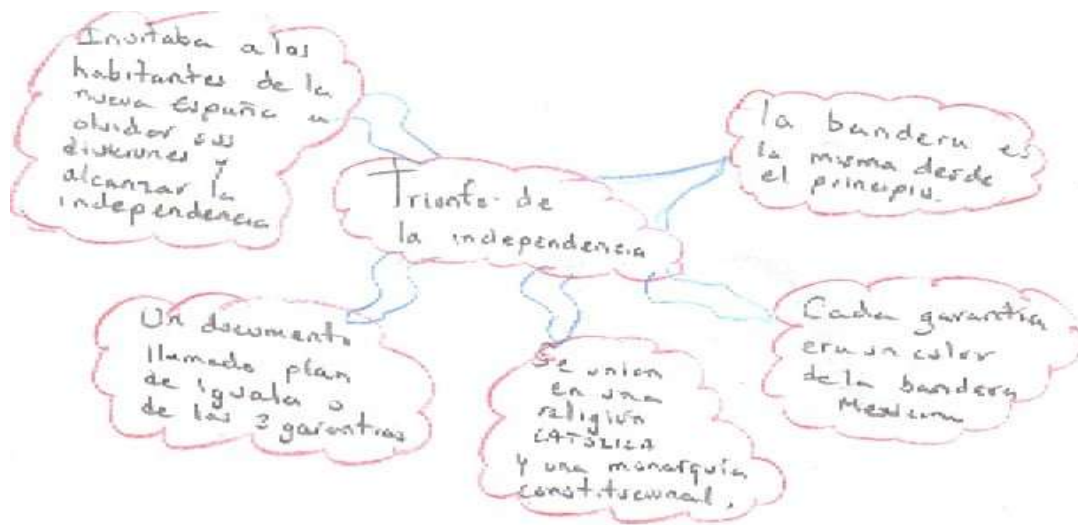 Invitaba a los
habitantes de la
nueva España a
olvidar sus
divisiones y
alcanzar la
independencia
Triunfo de
la independencia
la bandera es
la misma desde
el principio.
Un documento
llamado plan
de iguala o
de las 3 garantías
Se unian
en una
religión
CATÓLICA
y una monarquía
constitucional.
Cada garantía
era un color
de la bandera
Mexicana